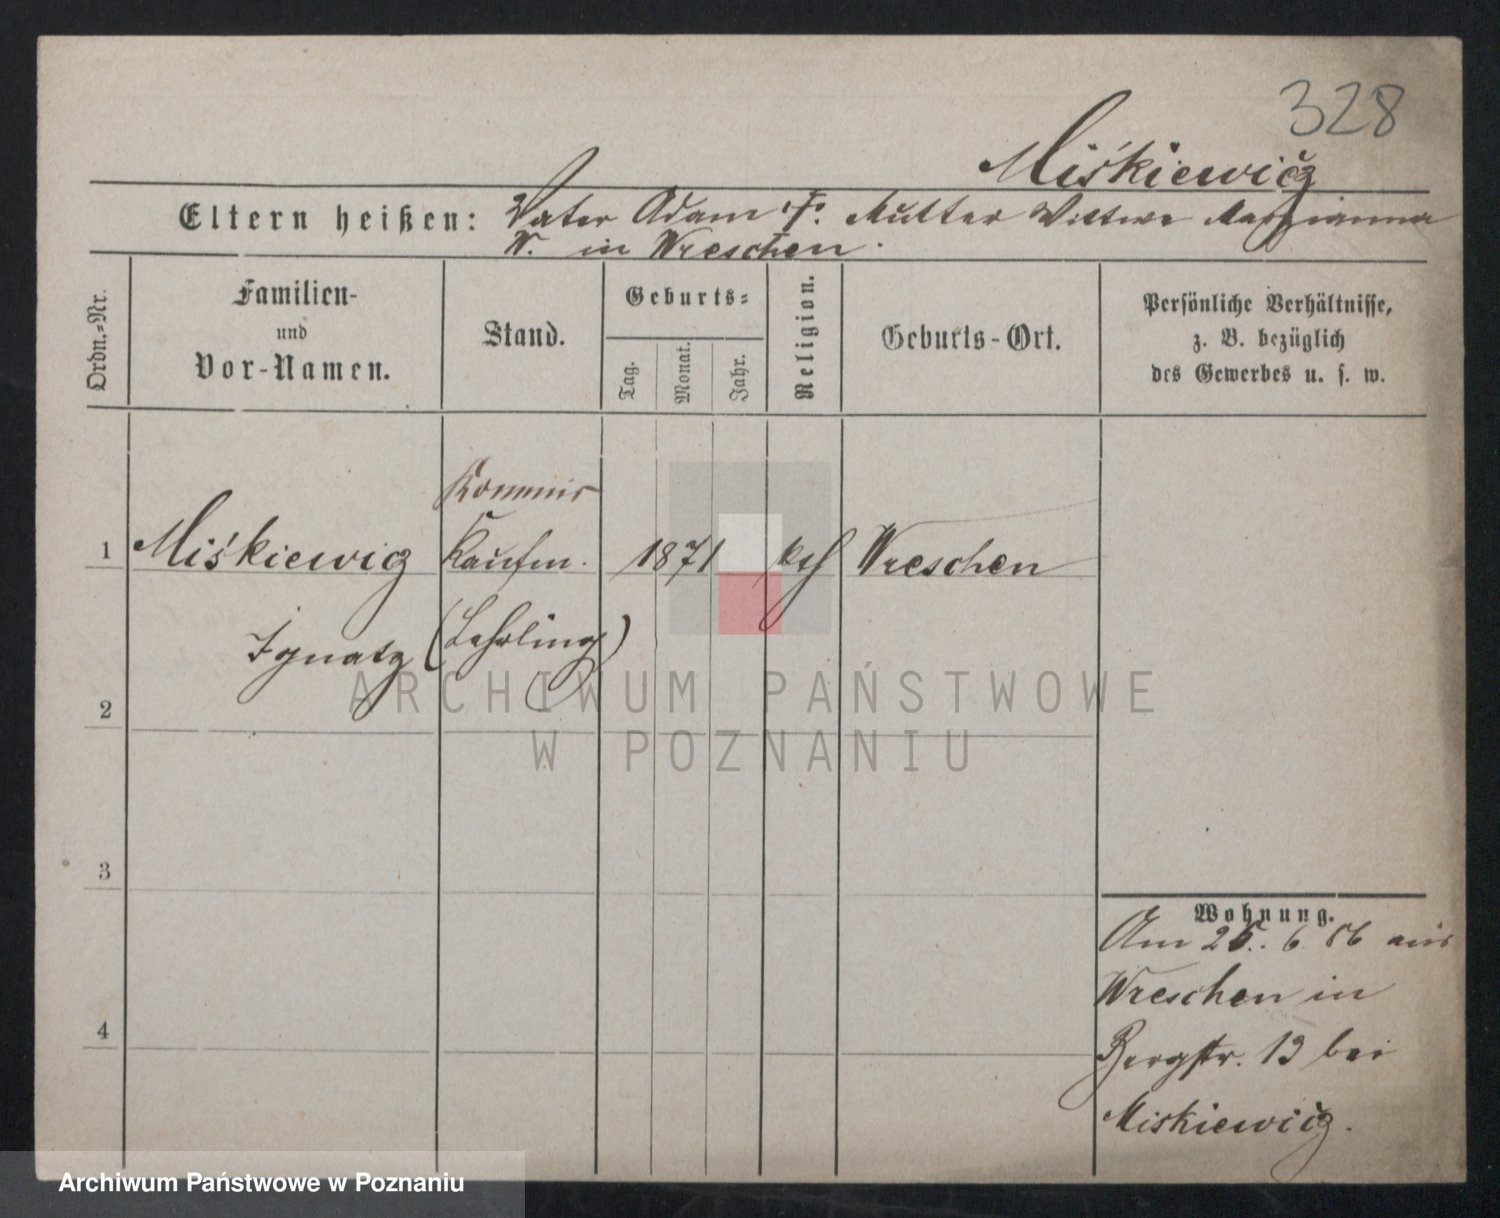 328
Miśkiewicz
Eltern heißen: Vater Adam †. Mutter Wittwe Maryianna
W. in Wreschen.
Ordn.=Nr.
Familien-
und
Vor-Namen.
Stand.
Geburts=
Tag.
Monat.
Jahr.
Religion.
Geburts-Ort.
Persönliche Verhältnisse,
z. B. bezüglich
des Gewerbes u. s. w.
Kommis
1 Miśkiewicz Kaufm. 1871 kth Wreschen
Ignatz (Lehrling)
ARCHIWUM PAŃSTWOWE
2
W POZNANIU
3
Wohnung.
Am 26. 6. 86 aus
Wreschen in
4
Bergstr. 13 bei
Miskiewicz.
Archiwum Państwowe w Poznaniu